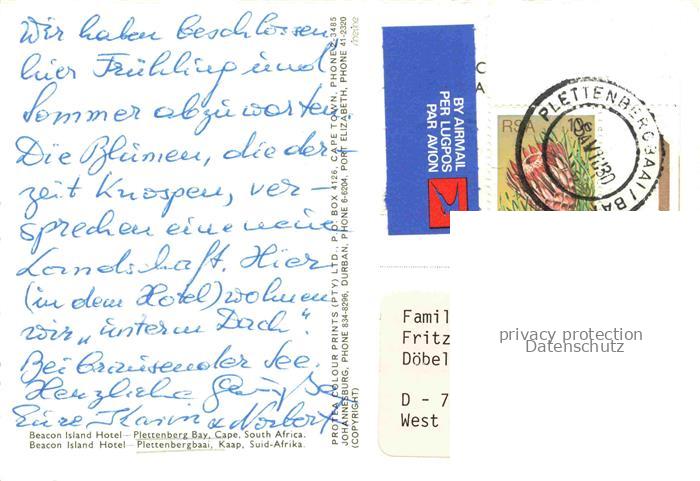 Wir haben beschlossen,
hier Frühling und
Sommer abzuwarten.
Die Blumen, die der-
zeit Knospen, ver-
sprechen eine neue
Landschaft. Hier
(in dem Hotel) wohnen
wir „unterm Dach".
Bei brausender See.
Herzliche Grüße
Eure Karin & Norbert
Beacon Island Hotel — Plettenberg Bay, Cape, South Africa.
Beacon Island Hotel — Plettenbergbaai, Kaap, Suid-Afrika.
PROTEA COLOUR PRINTS (PTY) LTD., P.O. BOX 4126, CAPE TOWN, PHONE 2-3485
JOHANNESBURG, PHONE 834-8296, DURBAN, PHONE 6-6204, PORT ELIZABETH, PHONE 41-2320
(COPYRIGHT)
BY AIRMAIL
PER LUGPOS
PAR AVION
C
A
RSA
PLETTENBERGBAAI/BA
Famil
Fritz
Döbel
D - 7
West
privacy protection
Datenschutz